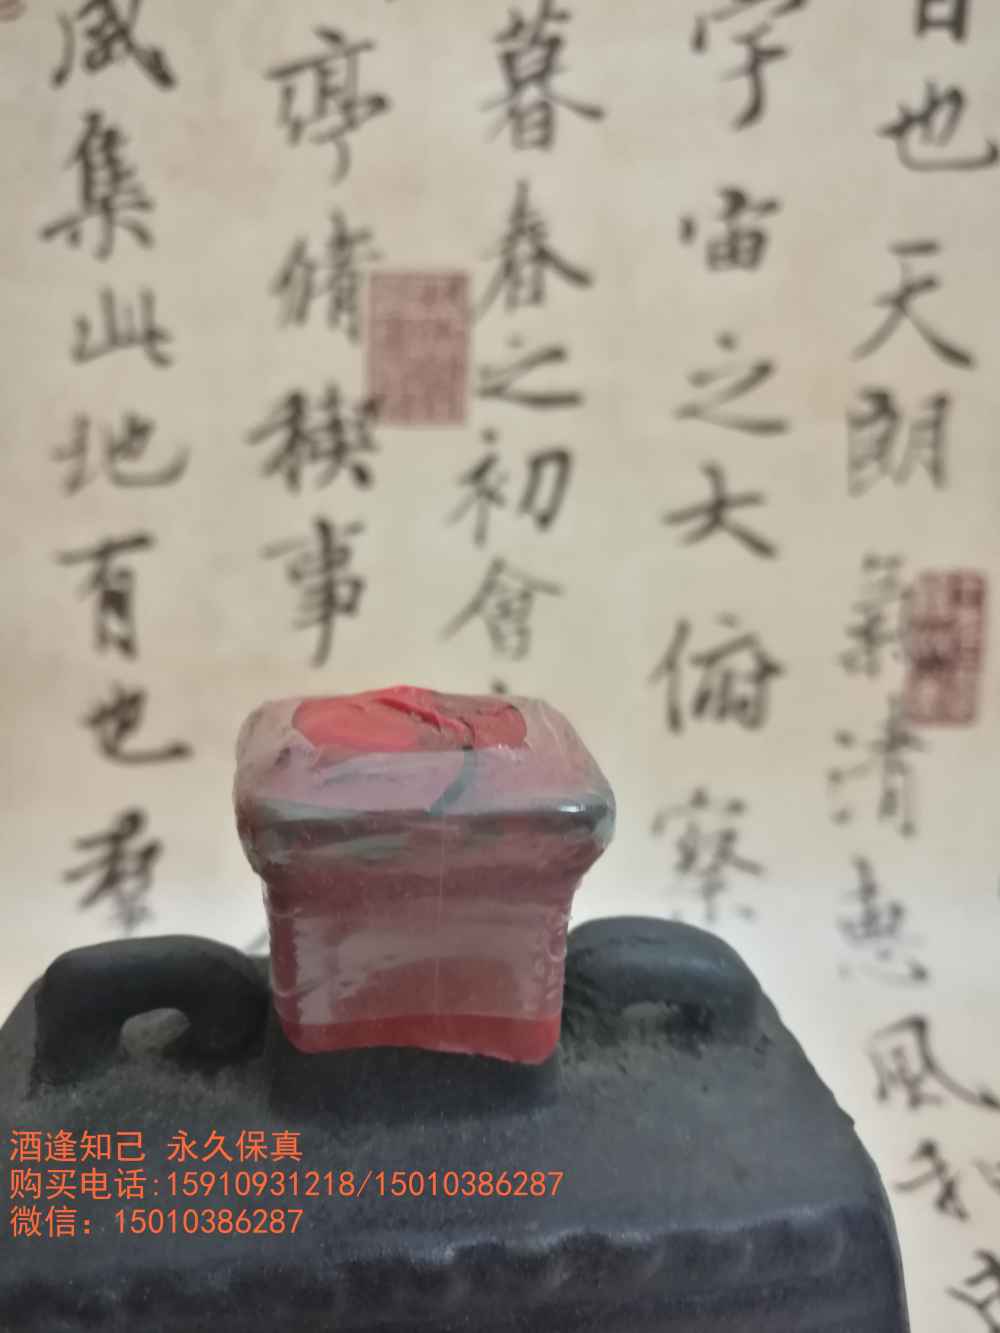 日也
天朗氣清惠風和
宇宙之大俯察
暮春之初會
亭脩稧事
咸集此地有也羣
酒逢知己 永久保真
购买电话:15910931218/15010386287
微信：15010386287